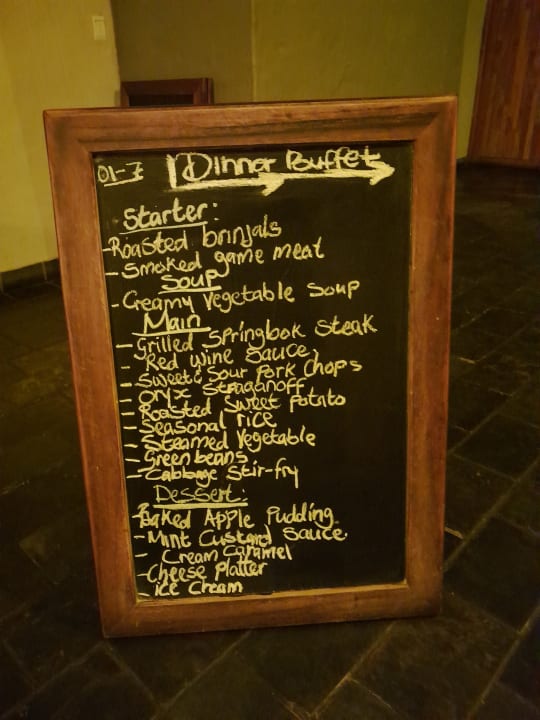 01-7 Dinner Buffet
Starter:
- Roasted brinjals
- Smoked game meat
Soup
- Creamy Vegetable Soup
Main
- Grilled Springbok Steak
- Red wine Sauce,
- Sweet & Sour Pork Chops
- Oryx Straganoff
- Roasted Sweet Potato
- Seasonal rice
- Steamed Vegetable
- Green beans
- Cabbage Stir-fry
Dessert:
- Baked Apple Pudding
- Mint Custard Sauce
- Cream Caramel
- Cheese Platter
- ice Cream